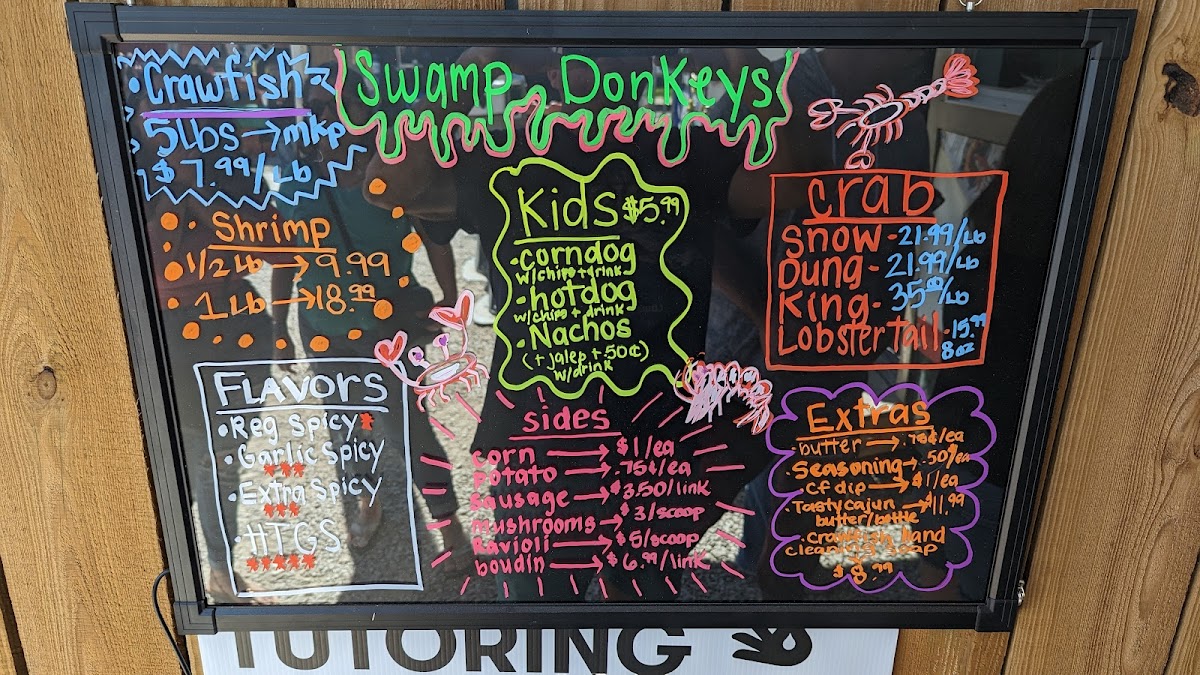 Swamp Donkeys
Crawfish
5lbs → mkp
$7.99/Lb
Shrimp
1/2 Lb → 9.99
1 Lb → 18.99
FLAVORS
• Reg Spicy *
• Garlic Spicy
***
• Extra Spicy
***
• HTGS
*****
Kids $5.99
• corndog
w/chips + drink
• hotdog
w/chips + drink
• Nachos
(+ jalep + .50¢)
w/drink
sides
corn → $1/ea
potato → .75¢/ea
sausage → $3.50/link
mushrooms → $3/scoop
Ravioli → $5/scoop
boudin → $6.99/link
crab
Snow - 21.99/Lb
Dung - 21.99/Lb
King - 35.00/Lb
Lobster Tail - 15.99
8oz
Extras
• butter → .75¢/ea
• Seasoning → .50¢/ea
• cf dip → $1/ea
• Tasty cajun → $11.99
butter/bottle
• Crawfish Hand
cleaning soap
$8.99
TUTORING